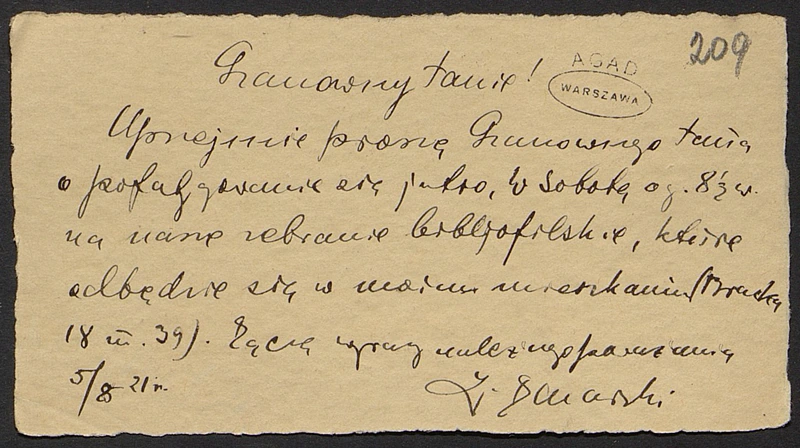 209
AGAD
WARSZAWA
Szanowny Panie!
Uprzejmie proszę Szanownego Pana
o pofatygowanie się jutro, w sobotę o g. 8½ w.
na nasze zebranie bibljofilskie, które
odbędzie się w moim mieszkaniu (Bracka
18 m. 39). Łączę wyrazy należnego poważania
5/8 21 r.